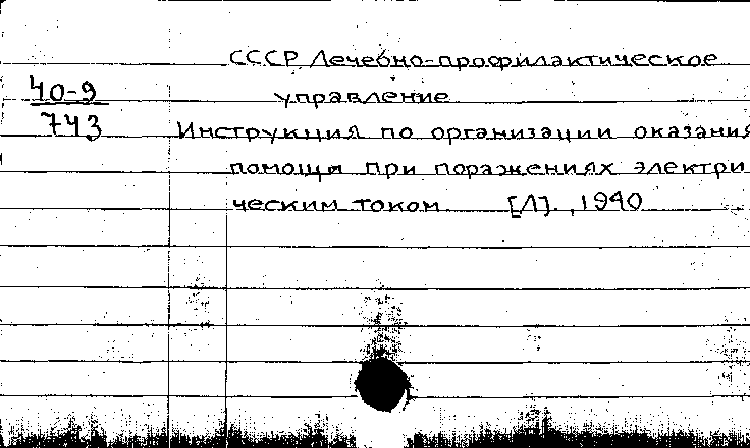 СССР Лечебно-профилактическое
40-9
управление
743
Инструкция по организации оказания
помощи при поражениях электри
ческим током. [Л]., 1940